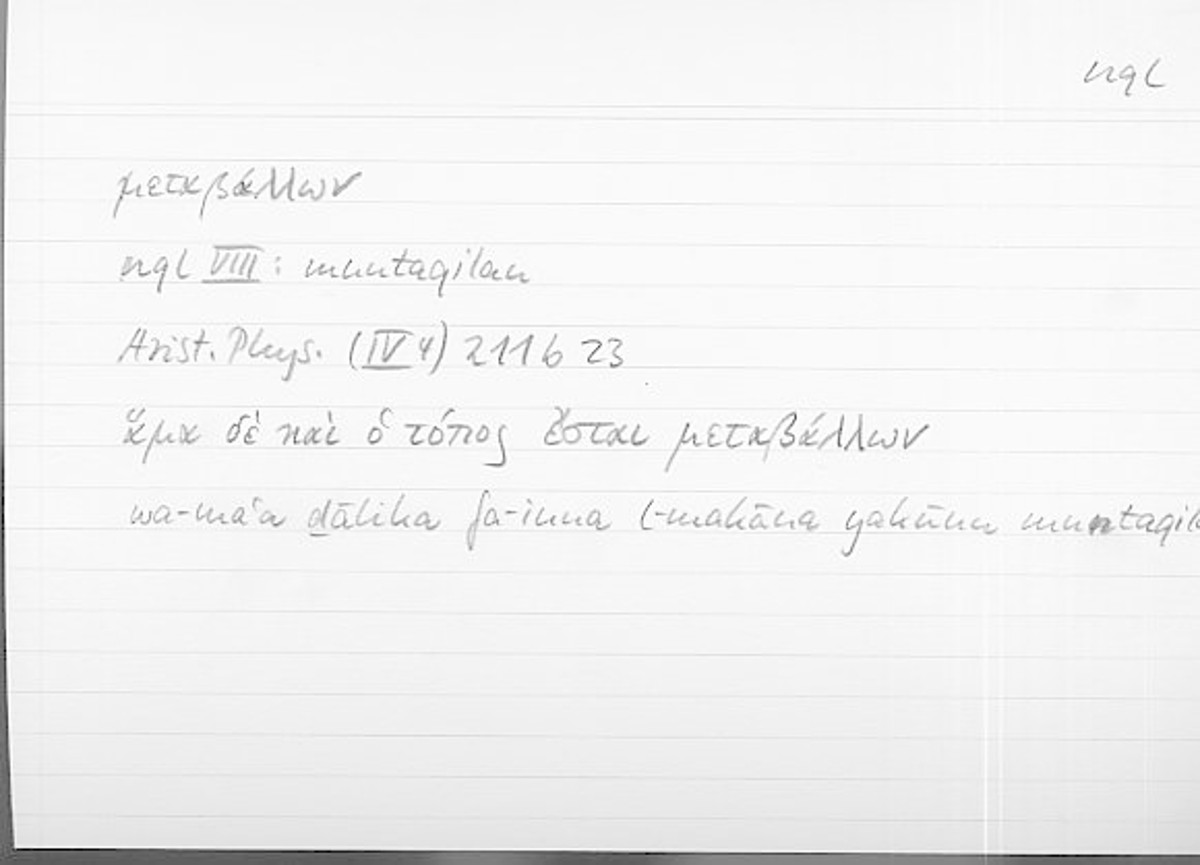 nql
μεταβάλλων
nql VIII : muntaqilan
Arist. Phys. (IV 4) 211 b 23
ἅμα δὲ καὶ ὁ τόπος ἔσται μεταβάλλων
wa-maʿa ḏālika fa-inna l-makāna yakūnu muntaqil